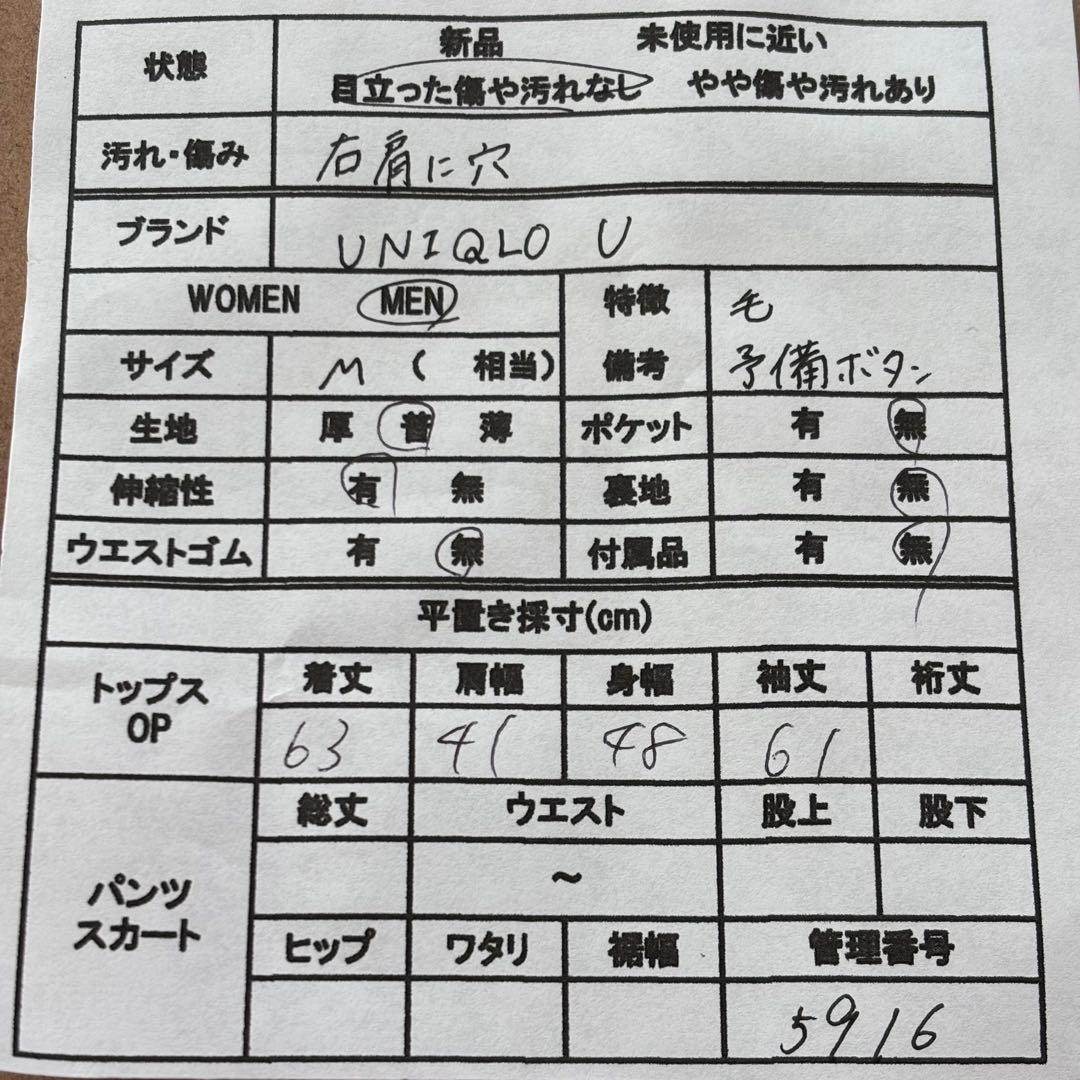 状態 新品 未使用に近い
目立った傷や汚れなし やや傷や汚れあり
汚れ・傷み 右肩に穴
ブランド UNIQLO U
WOMEN MEN 特徴 毛
サイズ M ( 相当) 備考 予備ボタン
生地 厚 普 薄 ポケット 有 無
伸縮性 有 無 裏地 有 無
ウエストゴム 有 無 付属品 有 無
平置き採寸(cm)
トップス OP 着丈 肩幅 身幅 袖丈 裄丈
63 41 48 61
パンツ スカート 総丈 ウエスト 股上 股下
~
ヒップ ワタリ 裾幅 管理番号
5916